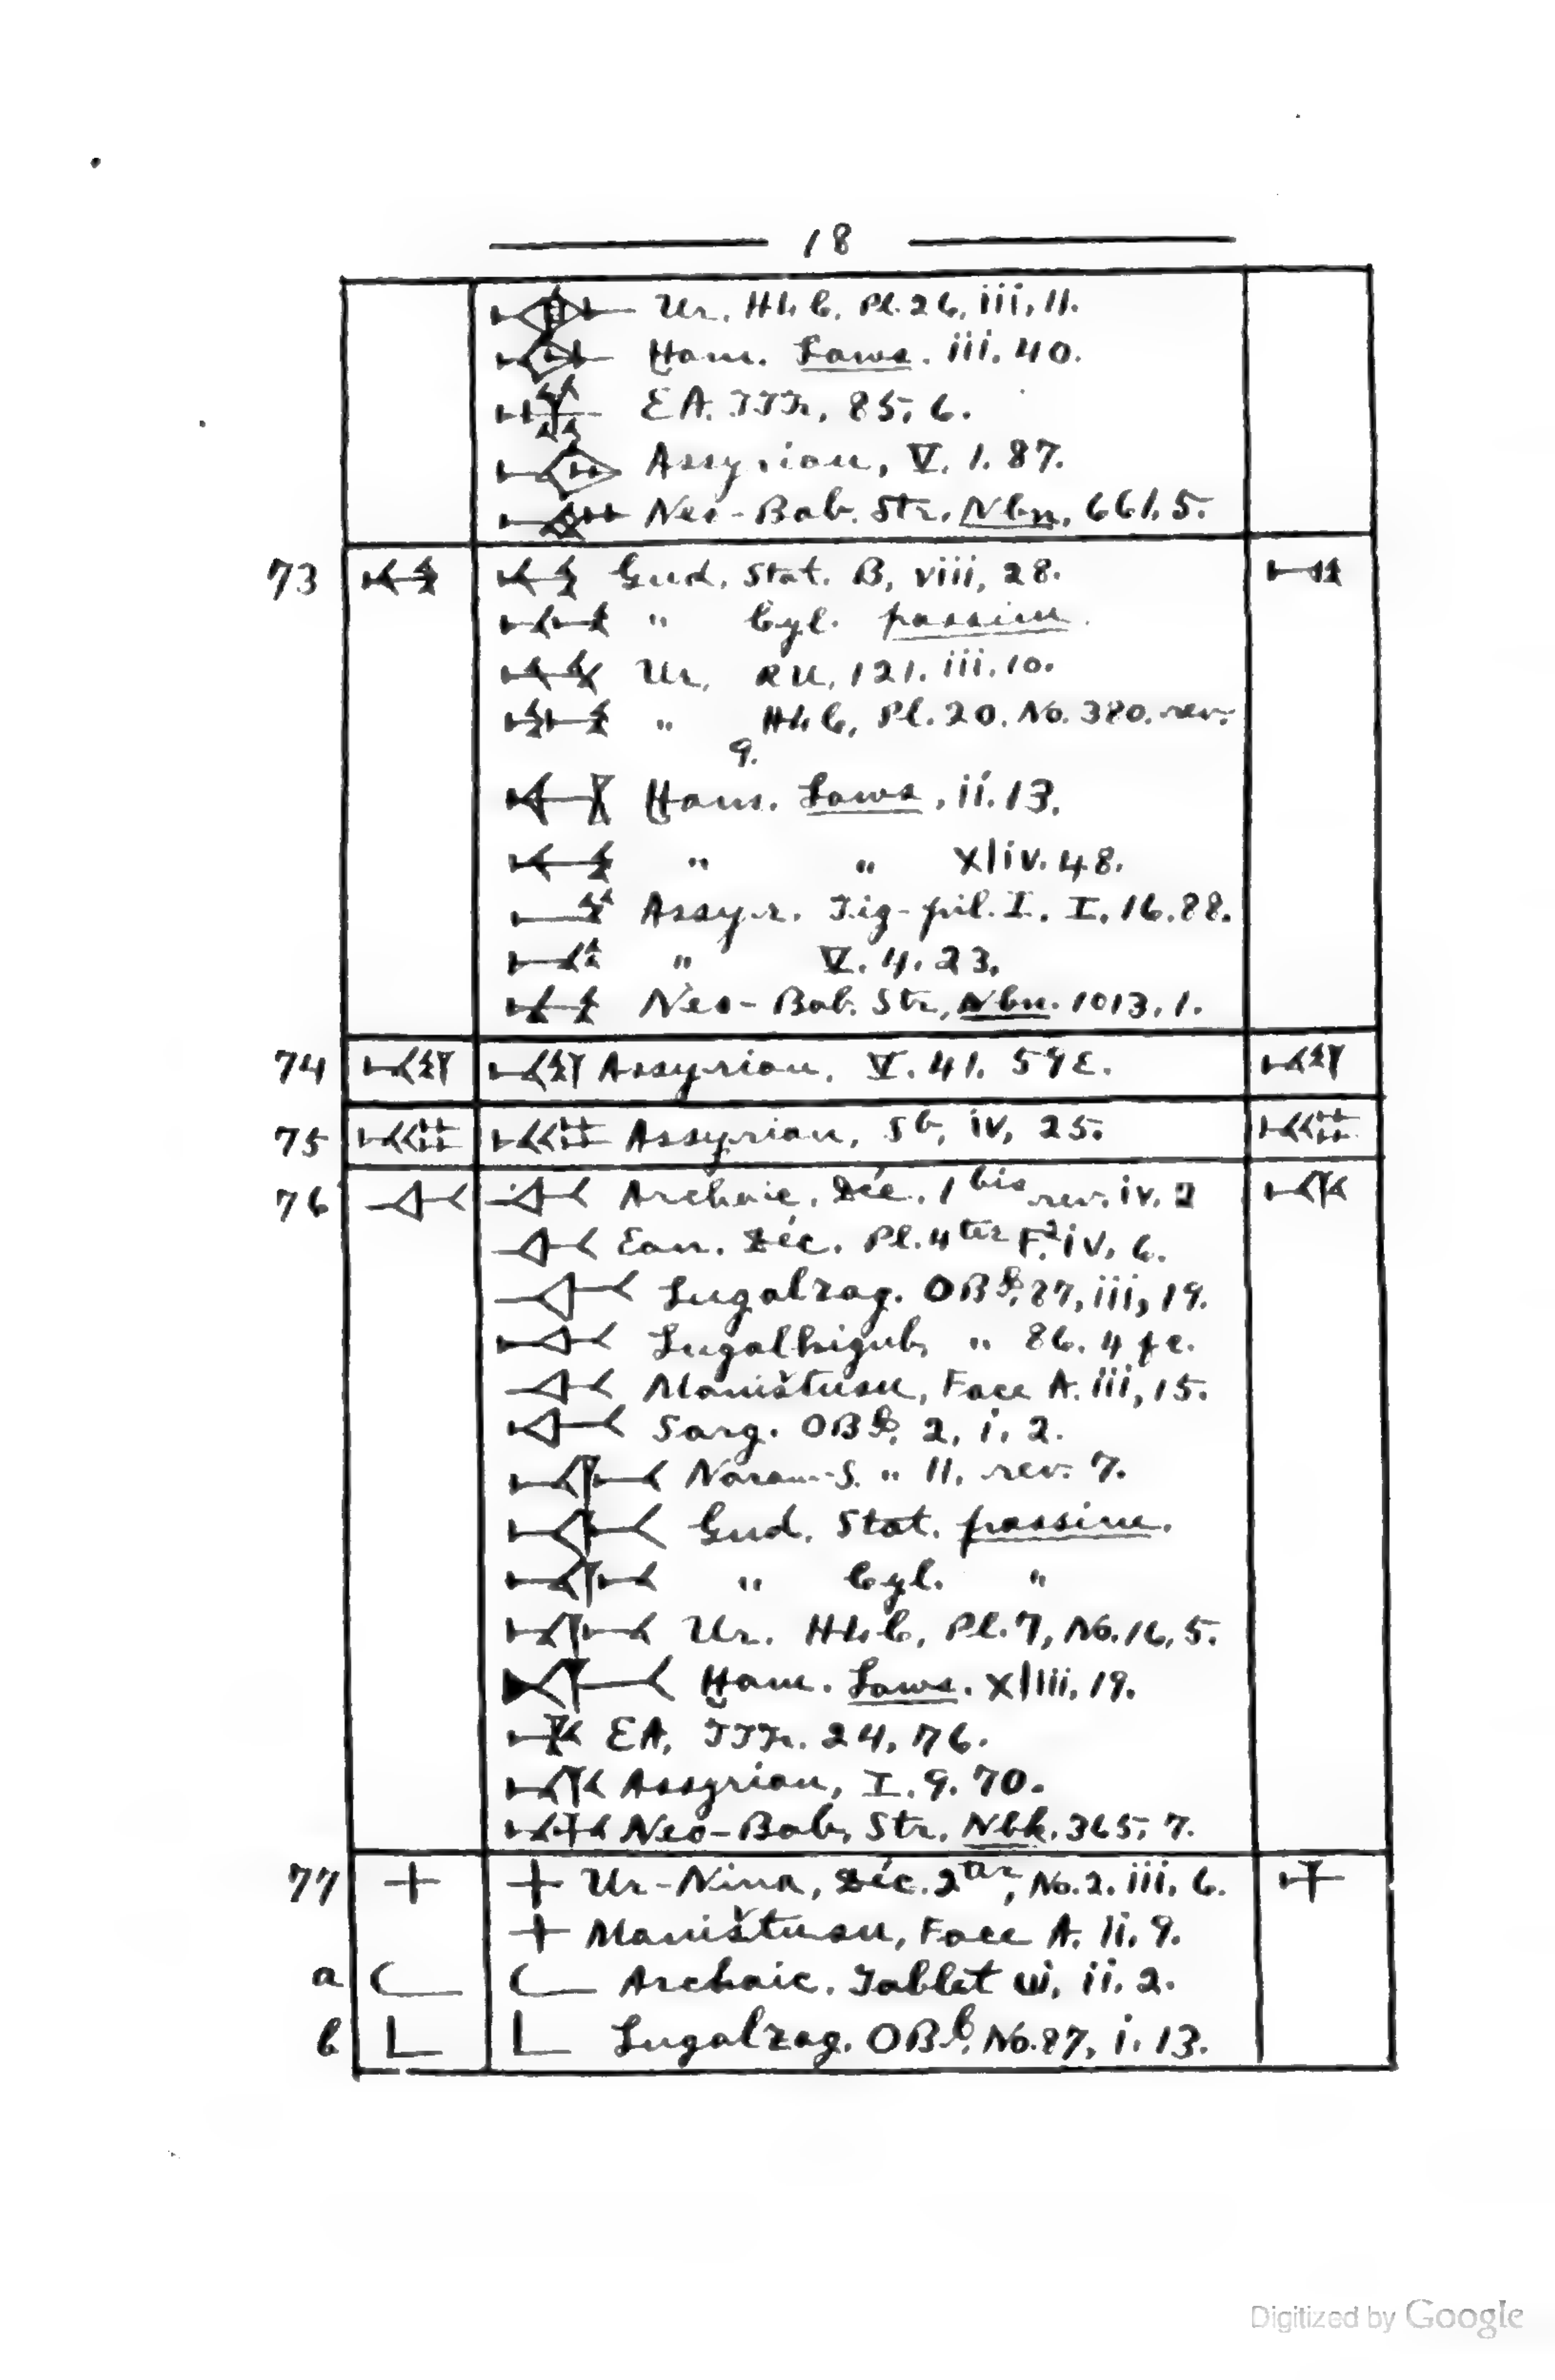 18
Ur. HLC. Pl. 26, iii, 11.
Ḫam. Laws. iii. 40.
EA. TTh, 85, 6.
Assyrian, V. 1. 87.
Neo-Bab. Str. Nbn, 661, 5.
73 Gud. Stat. B, viii, 28.
" Cyl. passim.
Ur, RU, 121. iii. 10.
" HLC, Pl. 20. No. 380. rev.
9.
Ḫam. Laws, ii. 13.
" " xliv. 48.
Assyr. Tig-pil. I. I. 16. 88.
" V. 4. 23.
Neo-Bab. Str, Nbn. 1013, 1.
74 Assyrian, V. 41.
75 Assyrian, Sb, iv, 25.
76 Archaic. Déc. 1 bis rev. iv. 2
Ean. Déc. Pl. 4 ter F.2 iv, 6.
Lugalzag. OBI, 87, iii, 19.
Lugalkigub, " 86. 4
Maništusu, Face A. iii, 15.
Sarg. OBI, 2, i, 2.
Naram-S. " 11, rev. 7.
Gud. Stat. passim.
" Cyl. "
Ur. HLC, Pl. 7, No. 16, 5.
Ḫam. Laws. xliii, 19.
EA, TTh. 24, 76.
Assyrian, I. 9. 70.
Neo-Bab, Str. Nbk. 365, 7.
77 Ur-Nina, Déc. 2 ter, No. 2. iii, 6.
Maništusu, Face A. ii. 9.
a Archaic. Tablet ii. 2.
b Lugalzag. OBI, No. 87, i. 13.
Digitized by Google